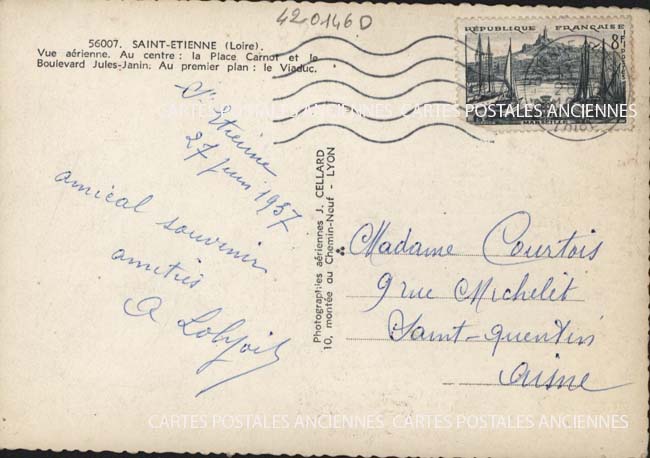 42-0146D
56007. SAINT-ETIENNE (Loire).
Vue aérienne. Au centre : la Place Carnot et le
Boulevard Jules-Janin. Au premier plan : le Viaduc.
RÉPUBLIQUE FRANÇAISE
8F
POSTES
MARSEILLE
CARTES POSTALES ANCIENNES CARTES POSTALES ANCIENNES
St Etienne
27 juin 1957
amical souvenir
amitiés
A
Photographies aériennes J. CELLARD
10, montée du Chemin-Neuf - LYON
Madame Courtois
9 rue Michelet
Saint-Quentin
Aisne
CARTES POSTALES ANCIENNES CARTES POSTALES ANCIENNES